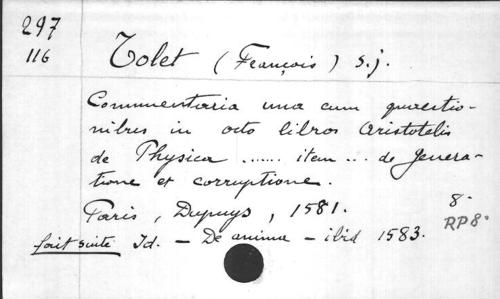 297
116
Tolet (François) s.j.
Commentaria una cum quaestio-
nibus in octo libros Aristotelis
de Physica ...... item ... de genera-
tione et corruptione.
Paris, Dupuys, 1581.
8°
RP 8°
fait suite Id. - De anima - ibid 1583.